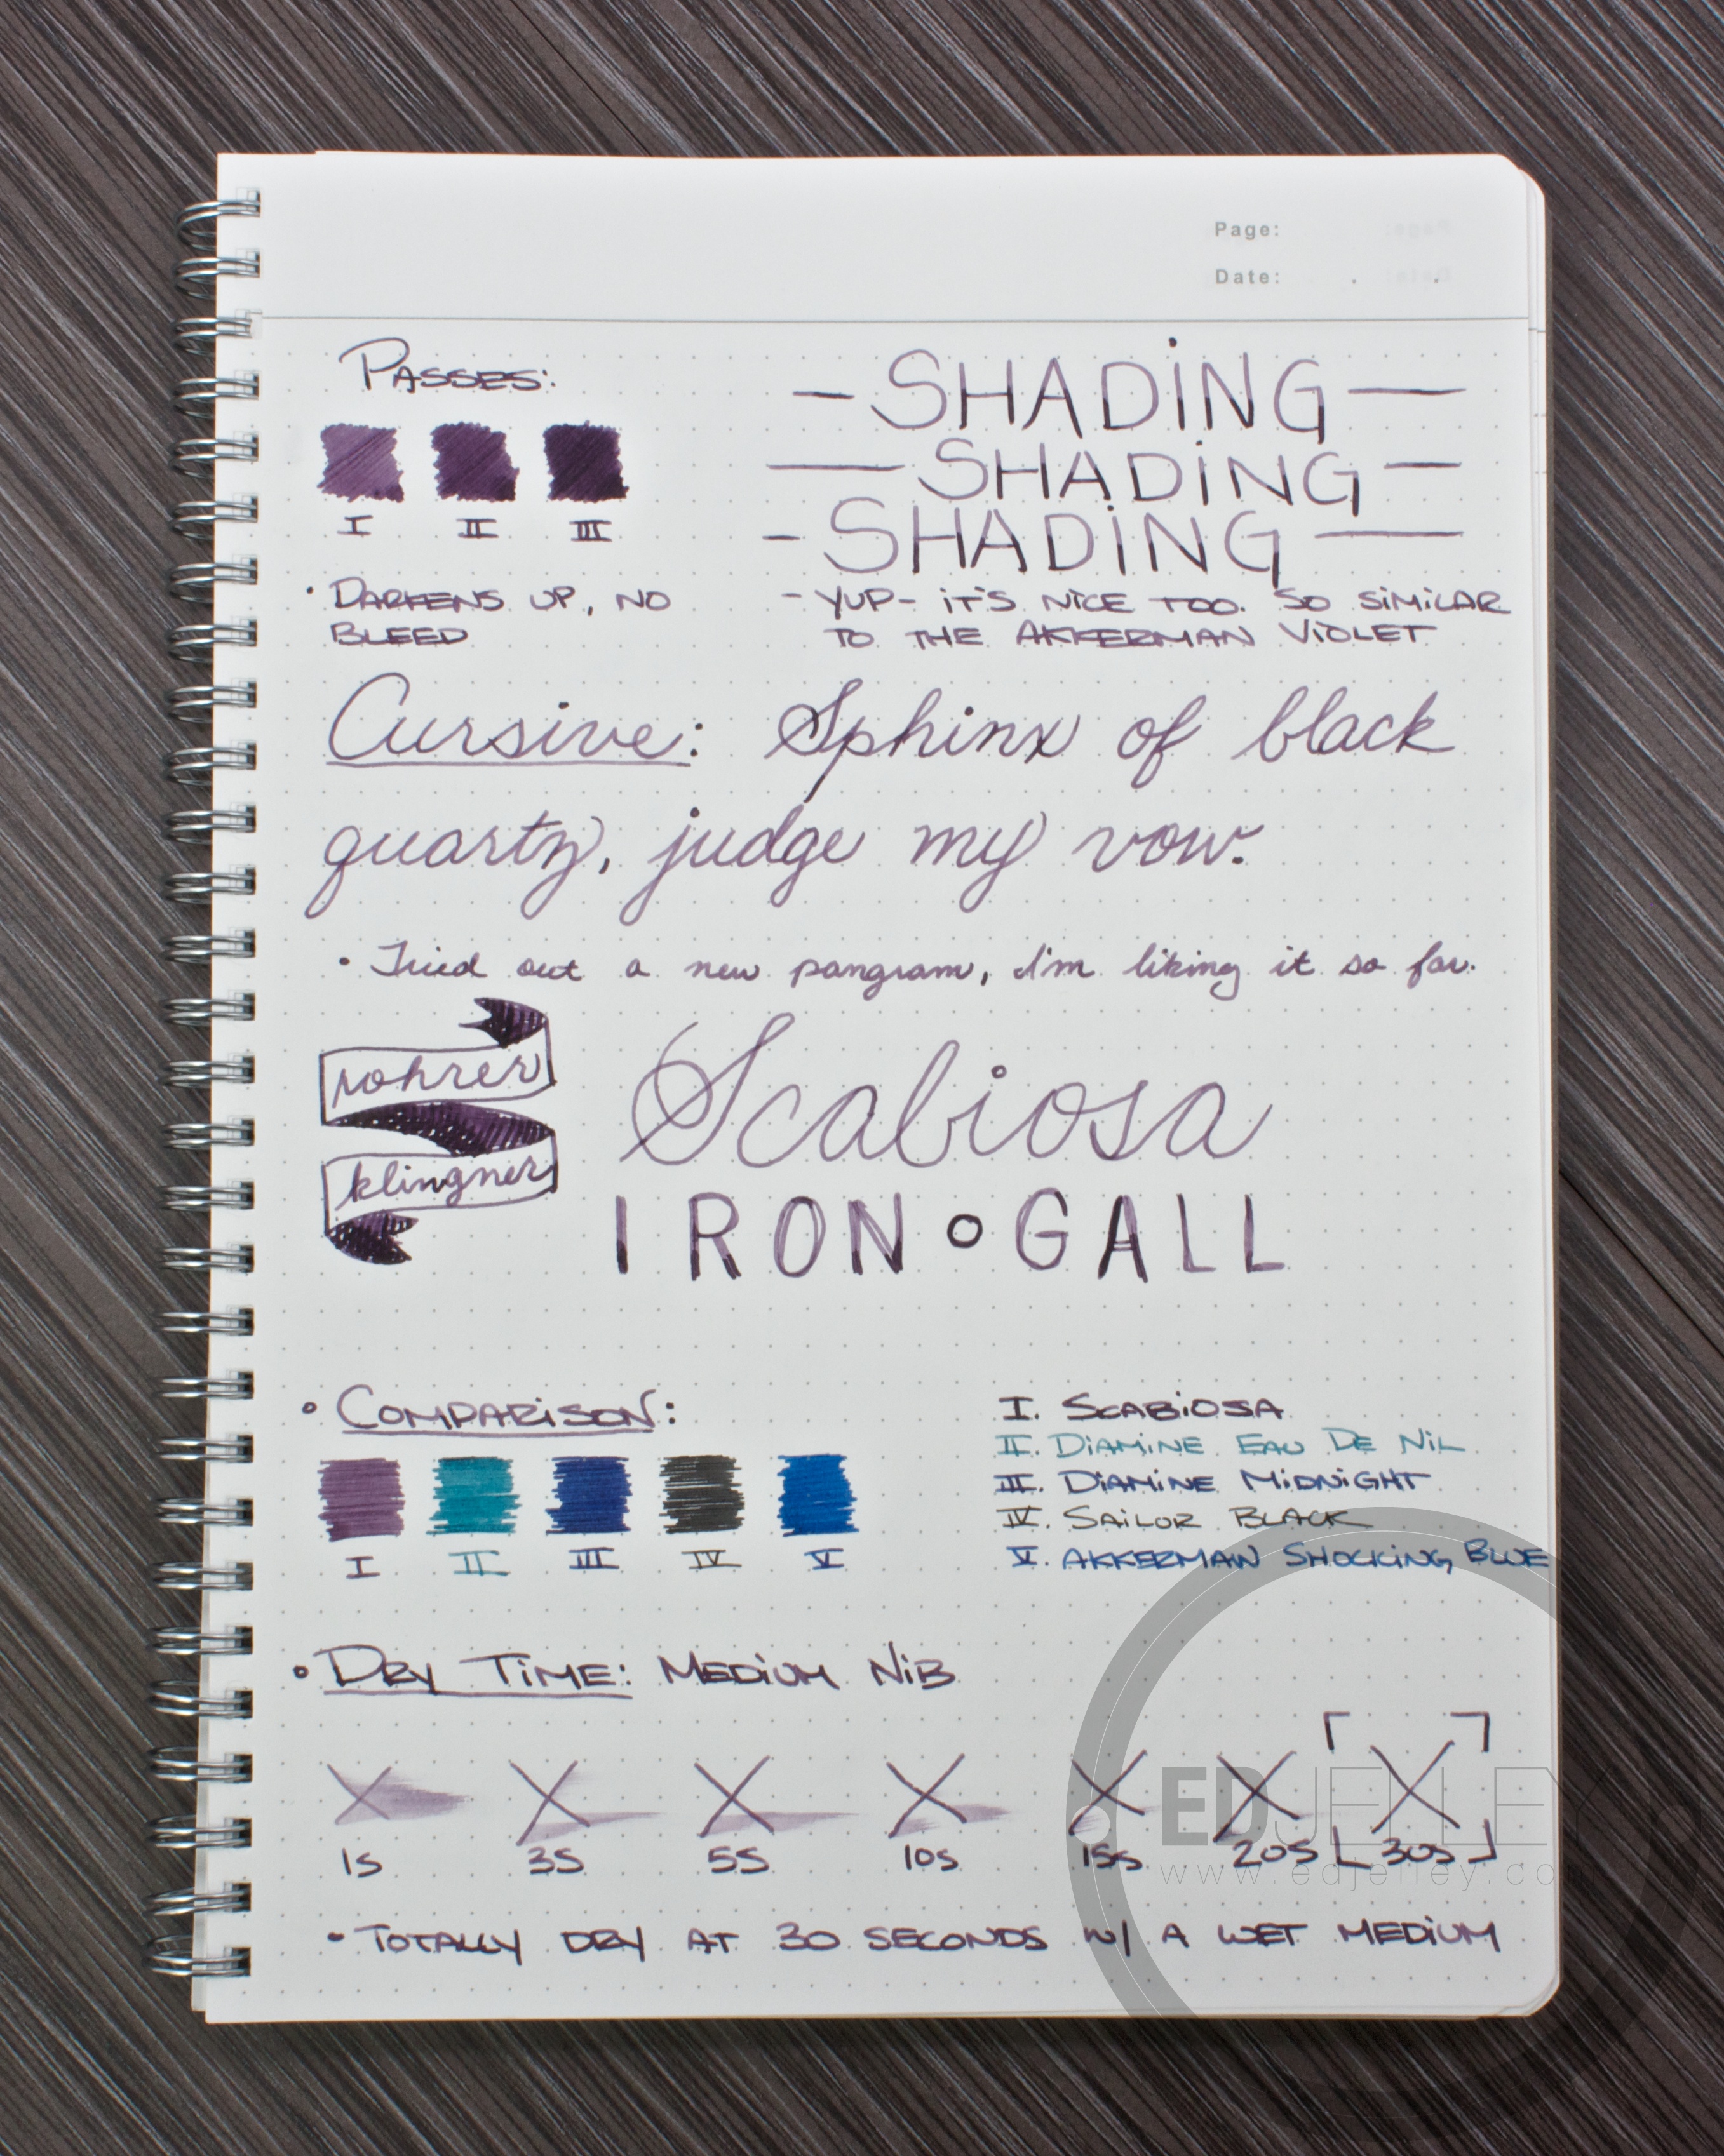 Page:
Date: . .
PASSES:
I II III
• DARKENS UP, NO
BLEED
– SHADING —
— SHADING –
– SHADING —
– YUP – IT'S NICE TOO. SO SIMILAR
TO THE AKKERMAN VIOLET
Cursive: Sphinx of black
quartz, judge my vow.
• Tried out a new pangram, I'm liking it so far.
rohrer
klingner
Scabiosa
IRON • GALL
• COMPARISON:
I II III IV V
I. SCABIOSA
II. DIAMINE EAU DE NIL
III. DIAMINE MIDNIGHT
IV. SAILOR BLACK
V. AKKERMAN SHOCKING BLUE
• DRY TIME: MEDIUM NIB
X X X X X X X
1S 3S 5S 10S 15S 20S 30S
• TOTALLY DRY AT 30 SECONDS W/ A WET MEDIUM
EDJELLEY
www.edjelley.co